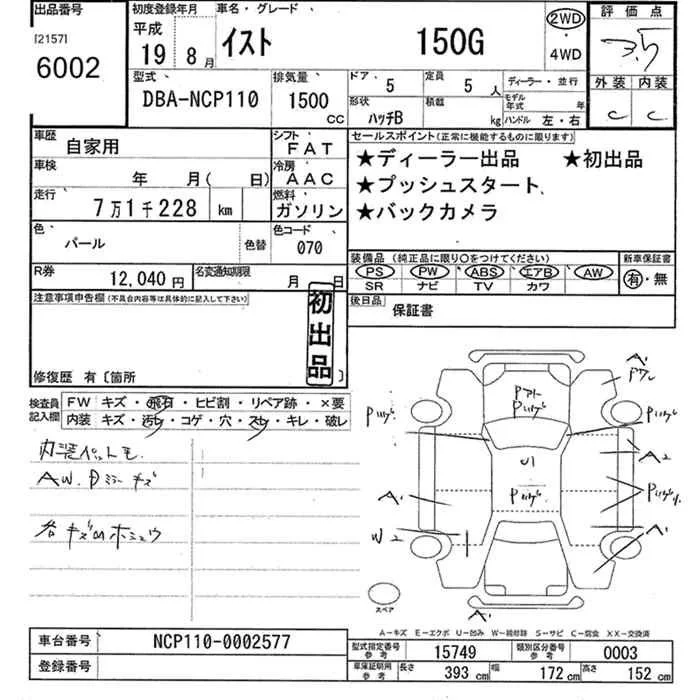 出品番号
[2157]
6002
初度登録年月
平成
19 8月
車名・グレード
イスト 150G
2WD
・
4WD
評価点
3.5
外装 内装
C C
型式
DBA-NCP110
排気量
1500
CC
ドア 5
定員 5人
ディーラー・並行
形状
ハッチB
積載
kg
モデル年式 年
ハンドル 左・右
車歴
自家用
シフト
FAT
車検
年 月( 日)
冷房
AAC
走行
7万1千228 km
燃料
ガソリン
色
パール
色替
色コード
070
R券
12,040円
名変通知期限
月 日
セールスポイント(正常に機能するものに限ります)
★ディーラー出品 ★初出品
★プッシュスタート
★バックカメラ
装備品 (純正品に限り○をつけてください)
PS PW ABS エアB AW
SR ナビ TV カワ
新車保証書
有・無
後日品
保証書
注意事項申告欄(不具合内容等は具体的に記入して下さい)
初出品
修復歴 有〔箇所 〕
検査員記入欄
FW キズ・飛石・ヒビ割・リペア跡・×要
内装 キズ・汚れ・コゲ・穴・スレ・キレ・破レ
内装ペットモ
AW. Dミラーキズ
各キズUホシュウ
A'
Fワレ
Pﾘﾝｸﾞ
Pﾘﾝｸﾞ
Pﾘﾝｸﾞ
A2
U1
Pﾘﾝｸﾞ
Pﾘﾝｸﾞ
A'
W2
A'
A'
スペア
A-キズ E-エクボ U-凹み W-補修跡 S-サビ C-腐食 XX-交換済
車台番号
NCP110-0002577
登録番号
型式指定番号 参考
15749
類別区分番号 参考
0003
車庫証明用 参考
長さ 393 cm 幅 172 cm 高さ 152 cm